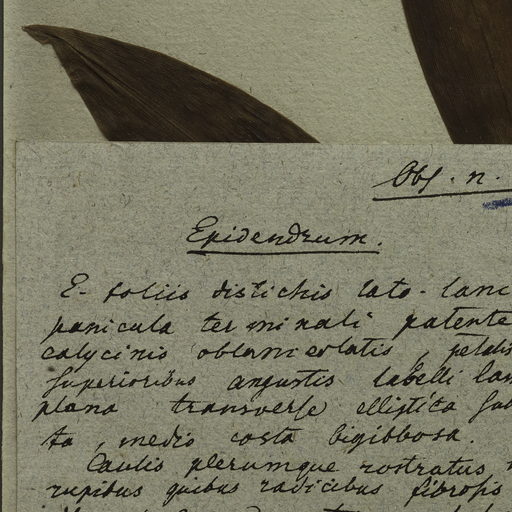 Obs. n.
Epidendrum.
E- foliis distichis lato-lanc
panicula terminali patente
calycinis oblanceolatis, petalis
superioribus angustis labelli lam
plana transverse elliptica sub
ta, medio costa bigibbosa.
Caulis plerumque rostratus
rupibus quibus radicibus fibrosis